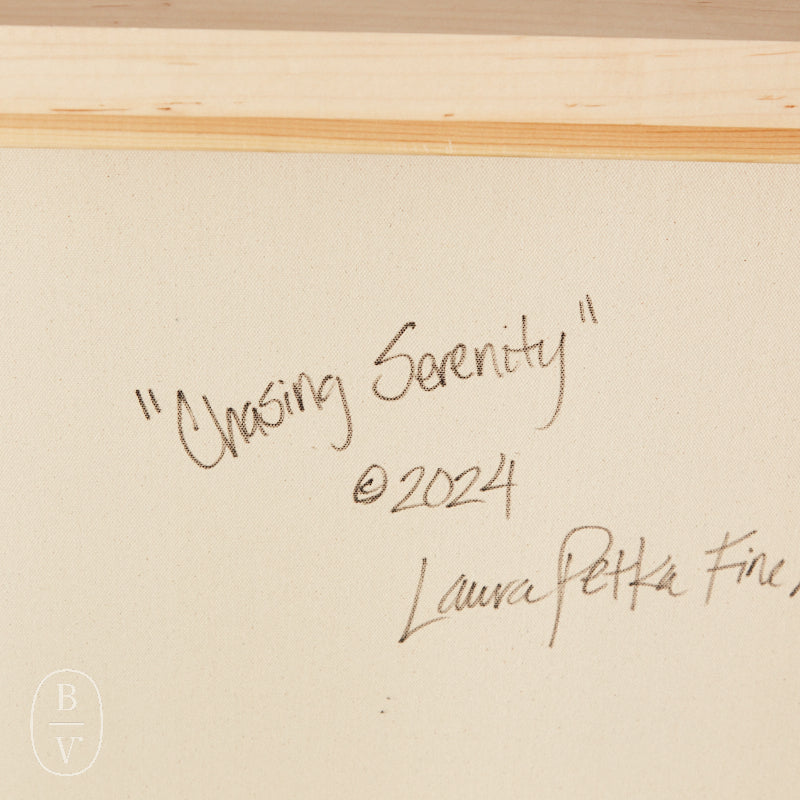 "Chasing Serenity"
©2024
Laura Petka Fine
B
V